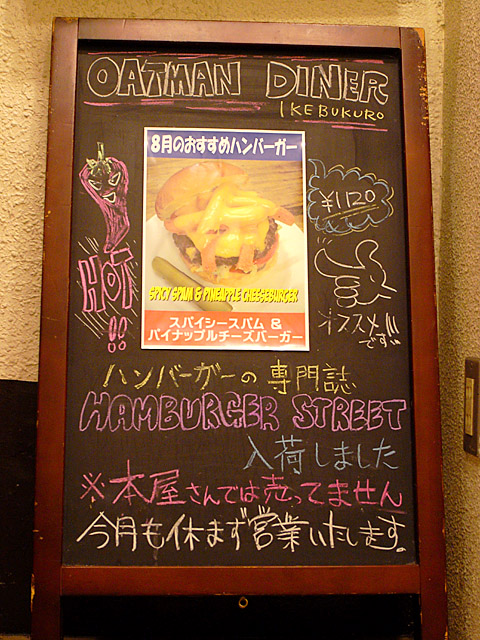 OATMAN DINER
IKEBUKURO
8月のおすすめハンバーガー
SPICY SPAM & PINEAPPLE CHEESEBURGER
スパイシースパム &
パイナップルチーズバーガー
HOT!!
¥1120
オススメです!!!
ハンバーガーの専門誌
HAMBURGER STREET
入荷しました
※本屋さんでは売ってません
今月も休まず営業いたします。